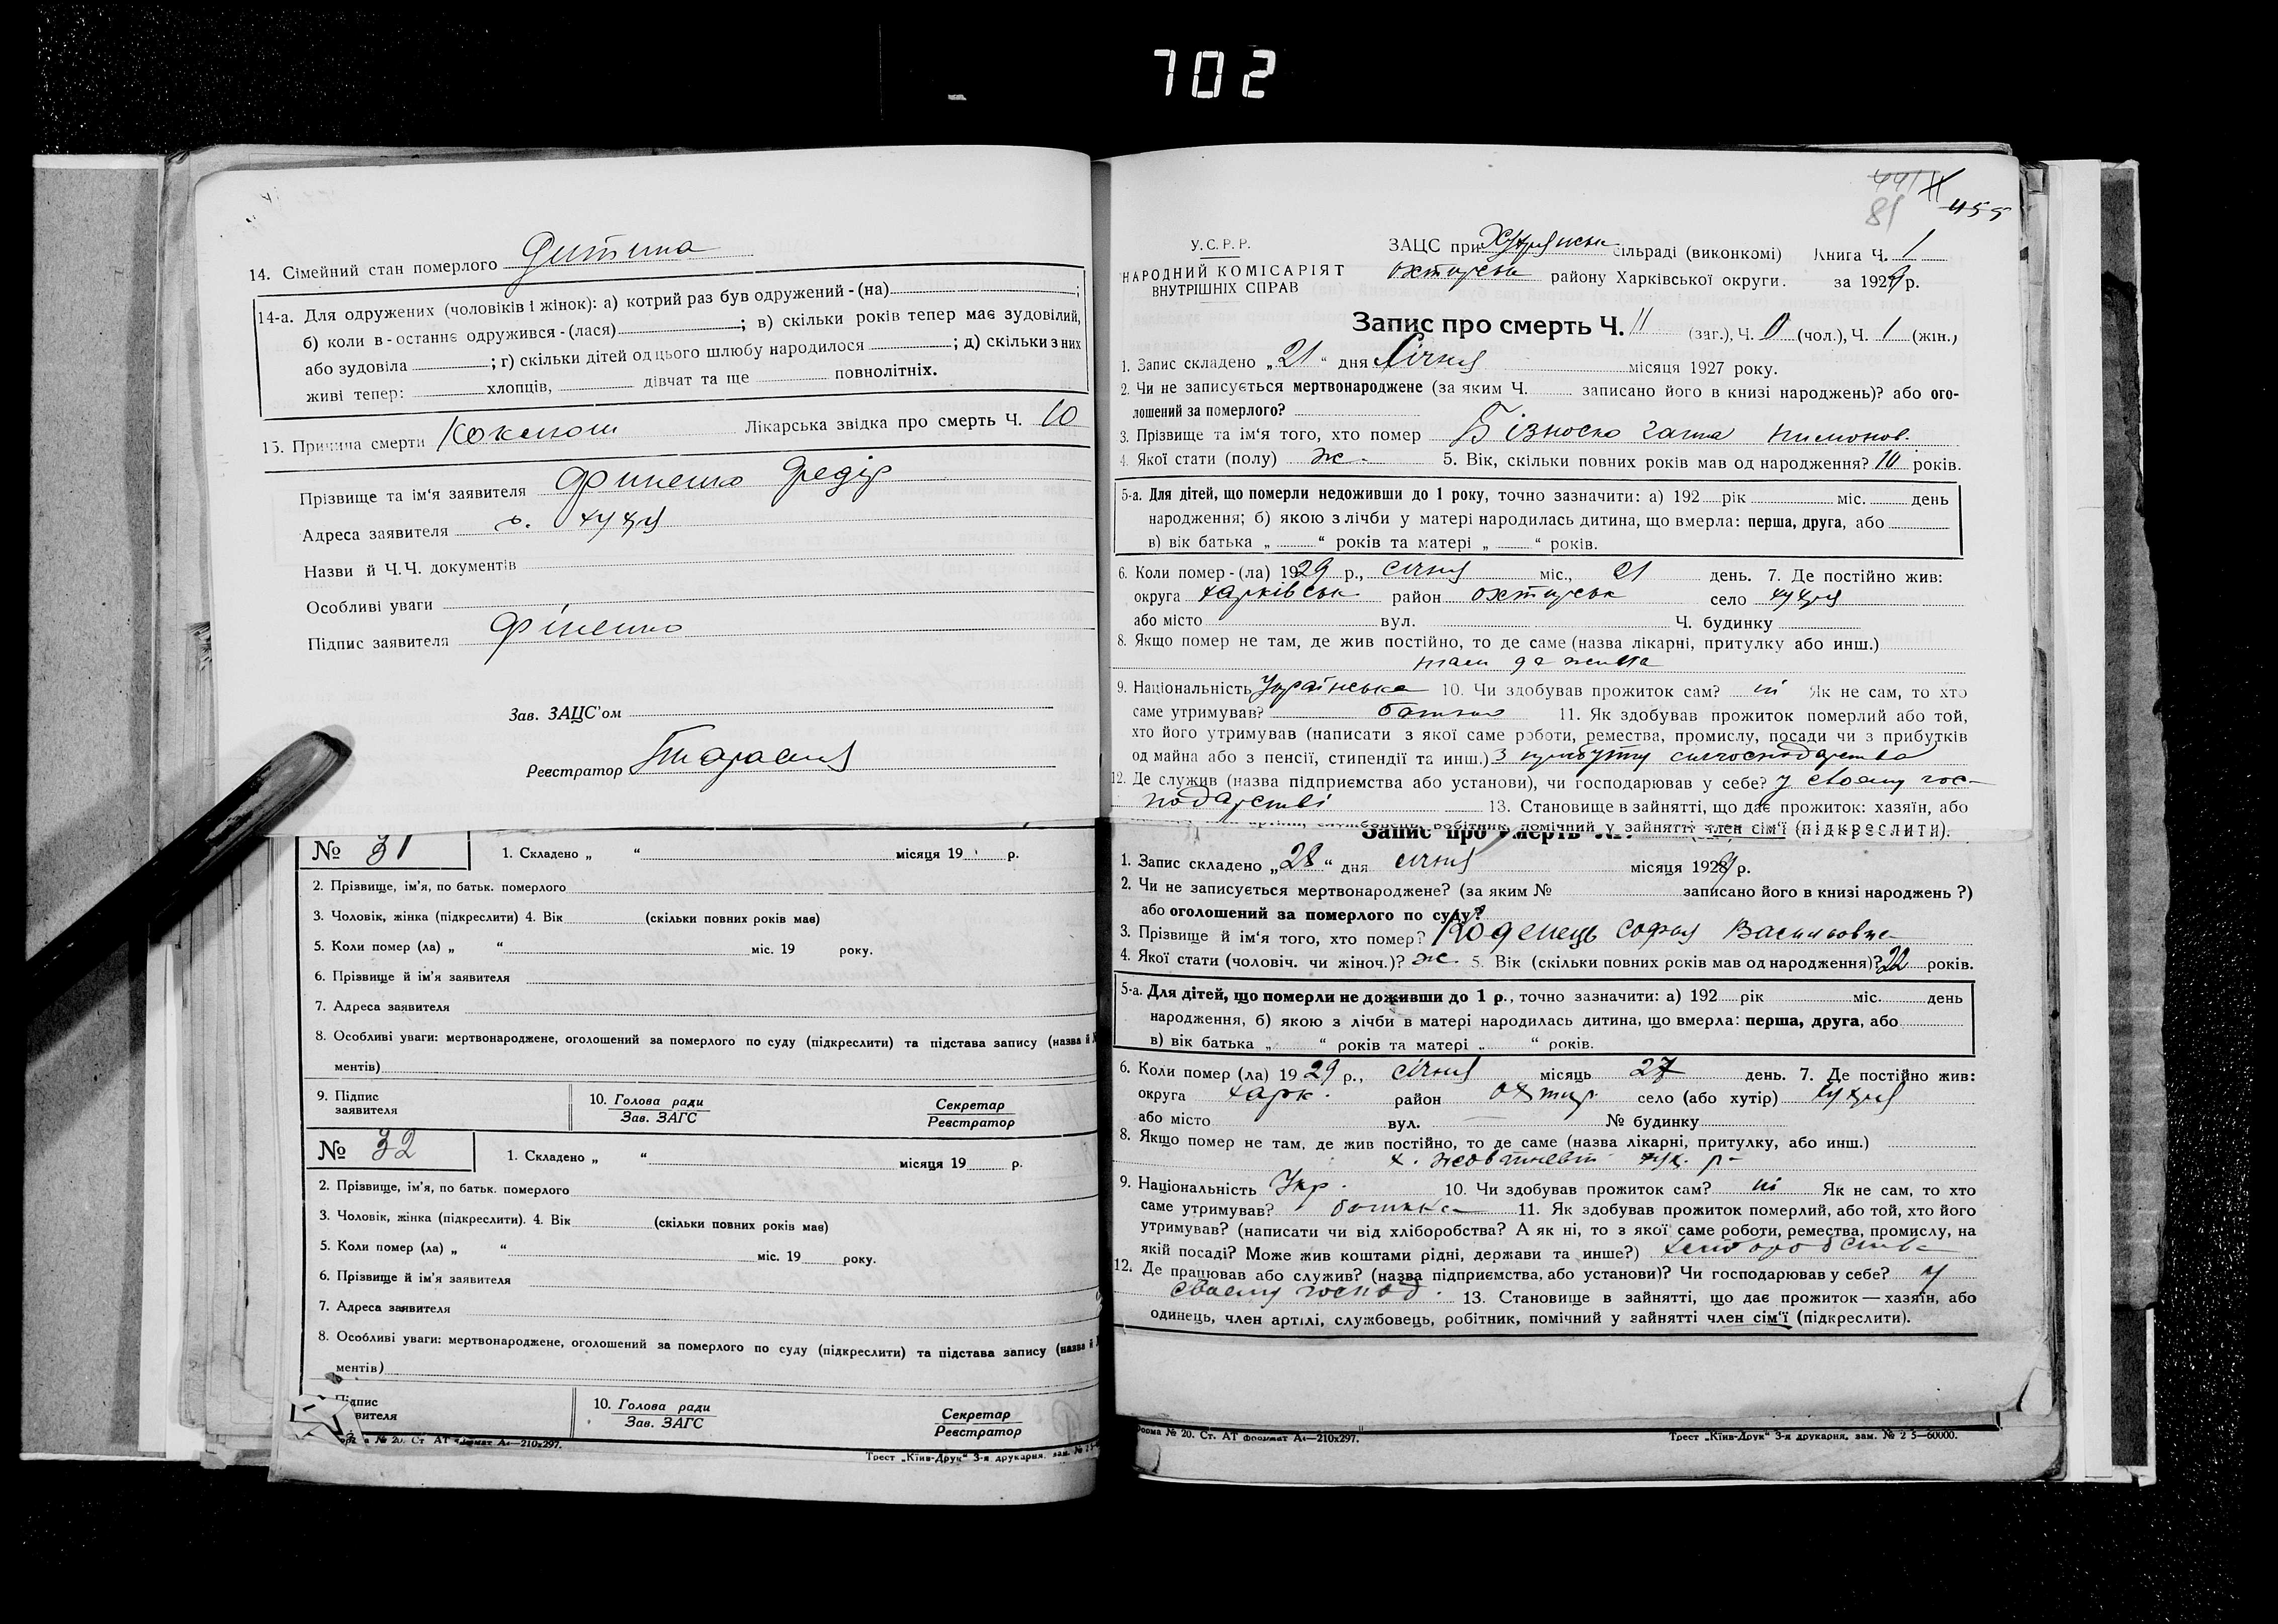 702
14. Сімейний стан померлого Дитина
14-а. Для одружених (чоловіків і жінок): а) котрий раз був одружений - (на) ;
б) коли в - останнє одружився - (лася) ; в) скільки років тепер має зудовілий,
або зудовіла ; г) скільки дітей од цього шлюбу народилося ; д) скільки з них
живі тепер: хлопців, дівчат та ще повнолітніх.
15. Причина смерти Коклюш Лікарська звідка про смерть Ч. 10
Прізвище та ім'я заявителя Финенко Федір
Адреса заявителя с. Хухря
Назви й Ч.Ч. документів
Особливі уваги
Підпис заявителя Фіненко
Зав. ЗАЦС'ом
Реєстратор
№ 31 1. Складено „ “ місяця 19 р.
2. Прізвище, ім'я, по батьк. померлого
3. Чоловік, жінка (підкреслити) 4. Вік (скільки повних років мав)
5. Коли помер (ла) „ “ міс. 19 року.
6. Прізвище й ім'я заявителя
7. Адреса заявителя
8. Особливі уваги: мертвонароджене, оголошений за померлого по суду (підкреслити) та підстава запису (назва й
ментів)
9. Підпис заявителя 10. Голова ради Зав. ЗАГС Секретар Реєстратор
№ 32 1. Складено „ “ місяця 19 р.
2. Прізвище, ім'я, по батьк. померлого
3. Чоловік, жінка (підкреслити). 4. Вік (скільки повних років мав)
5. Коли помер (ла) „ “ міс. 19 року.
6. Прізвище й ім'я заявителя
7. Адреса заявителя
8. Особливі уваги: мертвонароджене, оголошений за померлого по суду (підкреслити) та підстава запису (назва й
ментів)
Підпис вителя 10. Голова ради Зав. ЗАГС Секретар Реєстратор
№ 20. Ст. АТ формат А4—210х297. Трест „Київ-Друк“ 3-я друкарня. зам. №
441 81 455
У.С.Р.Р. ЗАЦС при Хухрянськ сільраді (виконкомі) Книга Ч. 1
НАРОДНИЙ КОМІСАРІЯТ ВНУТРІШНІХ СПРАВ Охтирськ району Харківської округи. за 1929 р.
Запис про смерть Ч. 11 (заг.), Ч. 0 (чол.), Ч. 1 (жін.)
1. Запис складено „21“ дня Січня місяця 1927 року.
2. Чи не записується мертвонароджене (за яким Ч. записано його в книзі народжень)? або ого-
лошений за померлого?
3. Прізвище та ім'я того, хто помер Бізноско
4. Якої стати (полу) ж. 5. Вік, скільки повних років мав од народження? 10 років.
5-а. Для дітей, що померли недоживши до 1 року, точно зазначити: а) 192 рік міс. день
народження; б) якою з лічби у матері народилась дитина, що вмерла: перша, друга, або
в) вік батька „ “ років та матері „ “ років.
6. Коли помер - (ла) 1929 р., січня міс., 21 день. 7. Де постійно жив:
округа Харківськ район Охтирськ село Хухря
або місто вул. Ч. будинку
8. Якщо помер не там, де жив постійно, то де саме (назва лікарні, притулку або инш.)
там де жила
9. Національність Українська 10. Чи здобував прожиток сам? ні Як не сам, то хто
саме утримував? батько 11. Як здобував прожиток померлий або той,
хто його утримував (написати з якої саме роботи, ремества, промислу, посади чи з прибутків
од майна або з пенсії, стипендії та инш.) з прибутку сільгосподарства
12. Де служив (назва підприємства або установи), чи господарював у себе? у своєму гос-
подарстві 13. Становище в зайнятті, що дає прожиток: хазяїн, або
службовець, робітник, помічний у зайнятті член сім'ї (підкреслити).
Запис про смерть
1. Запис складено „28“ дня січня місяця 1929 р.
2. Чи не записується мертвонароджене? (за яким № записано його в книзі народжень ?)
або оголошений за померлого по суду?
3. Прізвище й ім'я того, хто помер? Коденець Софья Васильовна
4. Якої стати (чоловіч. чи жіноч.)? ж. 5. Вік (скільки повних років мав од народження)? 22 років.
5-а. Для дітей, що померли не доживши до 1 р., точно зазначити: а) 192 рік міс. день
народження, б) якою з лічби в матері народилась дитина, що вмерла: перша, друга, або
в) вік батька „ “ років та матері „ “ років.
6. Коли помер (ла) 19 29 р., січня місяць 27 день. 7. Де постійно жив:
округа Харк. район Охтир. село (або хутір) Хухря
або місто вул. № будинку
8. Якщо помер не там, де жив постійно, то де саме (назва лікарні, притулку, або инш.)
9. Національність Укр. 10. Чи здобував прожиток сам? ні Як не сам, то хто
саме утримував? 11. Як здобував прожиток померлий, або той, хто його
утримував? (написати чи від хліборобства? А як ні, то з якої саме роботи, ремества, промислу, на
якій посаді? Може жив коштами рідні, держави та инше?) хліборобства
12. Де працював або служив? (назва підприємства, або установи)? Чи господарював у себе? у
своєму господ. 13. Становище в зайнятті, що дає прожиток — хазяїн, або
одинець, член артілі, службовець, робітник, помічний у зайнятті член сім'ї (підкреслити).
Форма № 20. Ст. АТ формат А4—210х297. Трест „Київ-Друк“ 3-я друкарня. зам. № 2 5—60000.